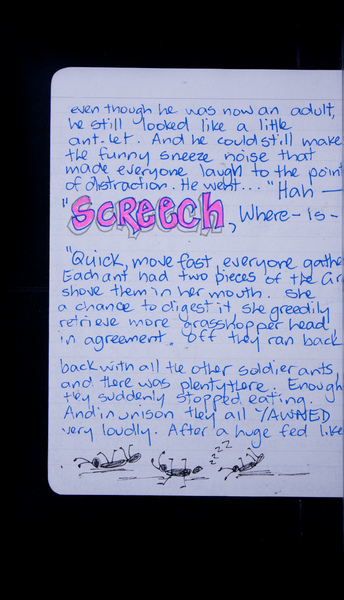 even though he was now an adult,
he still looked like a little
ant.let. And he could still make
the funny sneeze noise that
made everyone laugh to the point
of distraction. He went... "Hah —
"SCREECH, Where-Is-
"Quick, move fast, everyone gathe
Each ant had two pieces of the Gra
shove them in her mouth. She
a chance to digest it, she greedily
retrieve more grasshopper head
in agreement. Off they ran back
back with all the other soldier ants,
and there was plenty there. Enough
they suddenly stopped eating.
And in unison they all YAWNED
very loudly. After a huge fed like
zzzz